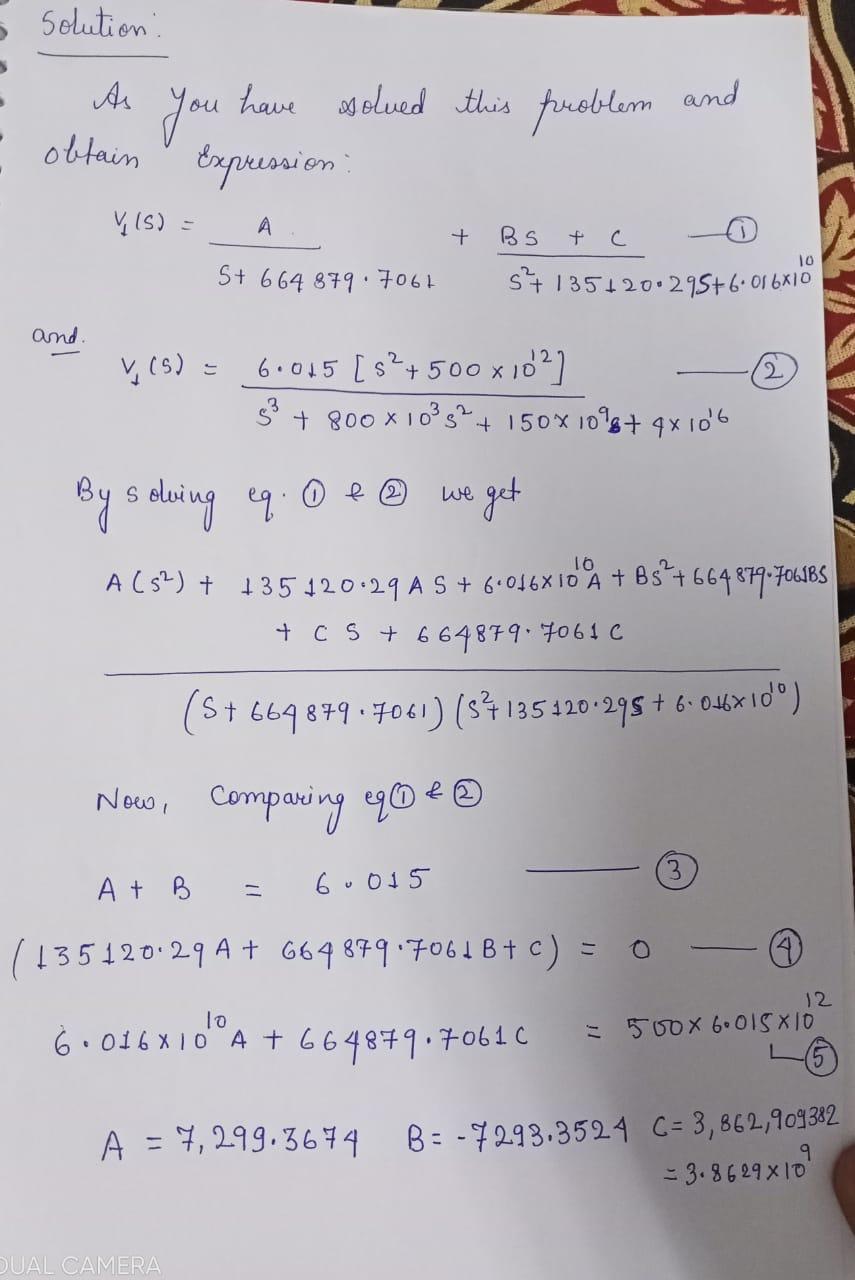 Solution:
As you have solved this problem and
obtain Expression:
V₁(S) = A / S + 664 879.7061 + BS + C / S² + 135120.29S + 6.016×10¹⁰ — ①
and.
V₁(S) = 6.015 [S² + 500 × 10¹²] / S³ + 800 × 10³S² + 150× 10⁹S + 4× 10¹⁶ — ②
By solving eq. ① & ② we get
A(S²) + 135120.29 A S + 6.016×10¹⁰A + BS² + 664 879.7061BS
+ C S + 664879.7061 C
(S + 664 879.7061) (S² + 135120.29S + 6.016× 10¹⁰)
Now, Comparing eq ① & ②
A + B = 6.015 — ③
(135120.29 A + 664 879.7061 B + C) = 0 — ④
6.016×10¹⁰ A + 664879.7061C = 500× 6.015×10¹² — ⑤
A = 7,299.3674 B = -7293.3524 C = 3,862,909382
= 3.8629×10⁹
DUAL CAMERA